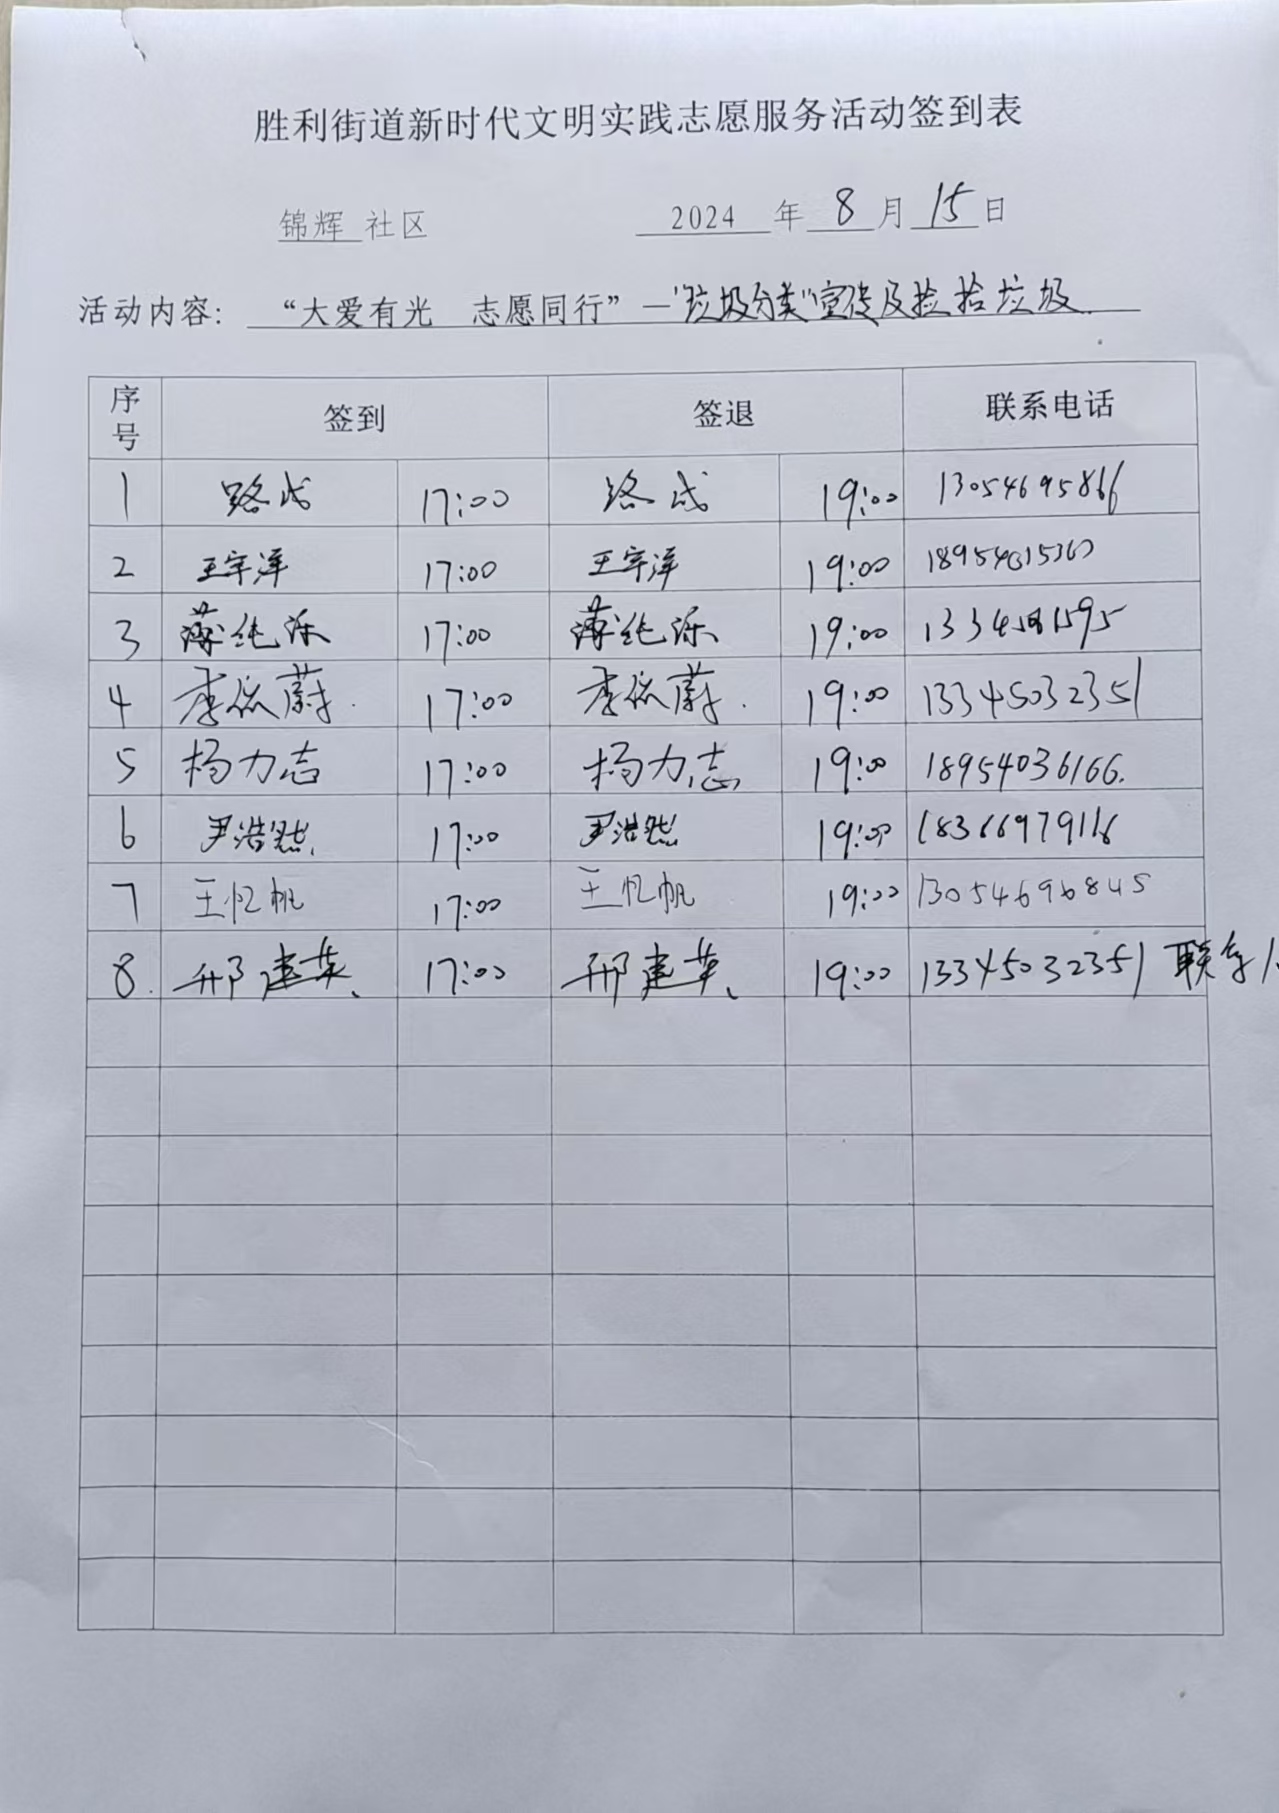 胜利街道新时代文明实践志愿服务活动签到表
锦辉 社区 2024 年 8 月 15 日
活动内容: “大爱有光 志愿同行”—“垃圾分类”宣传及捡拾垃圾.
序号 签到 签退 联系电话
1 路 17:00 路 19:00 13054695866
2 王宇洋 17:00 王宇洋 19:00
3 薄纯泺 17:00 薄纯泺 19:00
4 李依蔚. 17:00 李依蔚. 19:00 13345032351
5 杨力志 17:00 杨力志 19:00 18954036166.
6 尹浩然 17:00 尹浩然 19:00 18366979116
7 王忆帆 17:00 王忆帆 19:00 13054696845
8. 邢建英、 17:00 邢建英、 19:00 13345032351 联系人